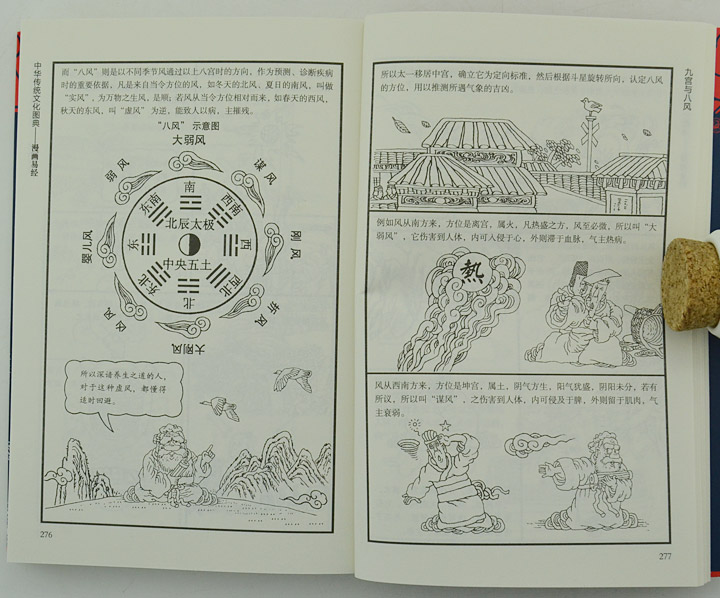 中华传统文化图典——漫画易经
而“八风”则是以不同季节风通过以上八宫时的方向，作为预测、诊断疾病
时的重要依据，凡是来自当令方位的风，如冬天的北风、夏日的南风，叫做
“实风”，为万物之生风，是顺；若风从当令方位相对而来，如春天的西风，
秋天的东风，叫“虚风”为逆，能致人以病，主摧残。
“八风”示意图
大弱风
弱风
谋风
南
东南
西南
北辰太极
婴儿风
东
西
刚风
中央五土
东北
西北
北
凶风
折风
大刚风
所以深谙养生之道的人，
对于这种虚风，都懂得
适时回避。
276
九宫与八风
所以太一移居中宫，确立它为定向标准，然后根据斗星旋转所向，认定八风
的方位，用以推测所遇气象的吉凶。
例如风从南方来，方位是离宫，属火，凡热盛之方，风至必微，所以叫“大
弱风”，它伤害到人体，内可入侵于心，外则滞于血脉，气主热病。
熱
风从西南方来，方位是坤宫，属土，阴气方生，阳气犹盛，阴阳未分，若有
所议，所以叫“谋风”，之伤害到人体，内可侵及于脾，外则留于肌肉，气
主衰弱。
277